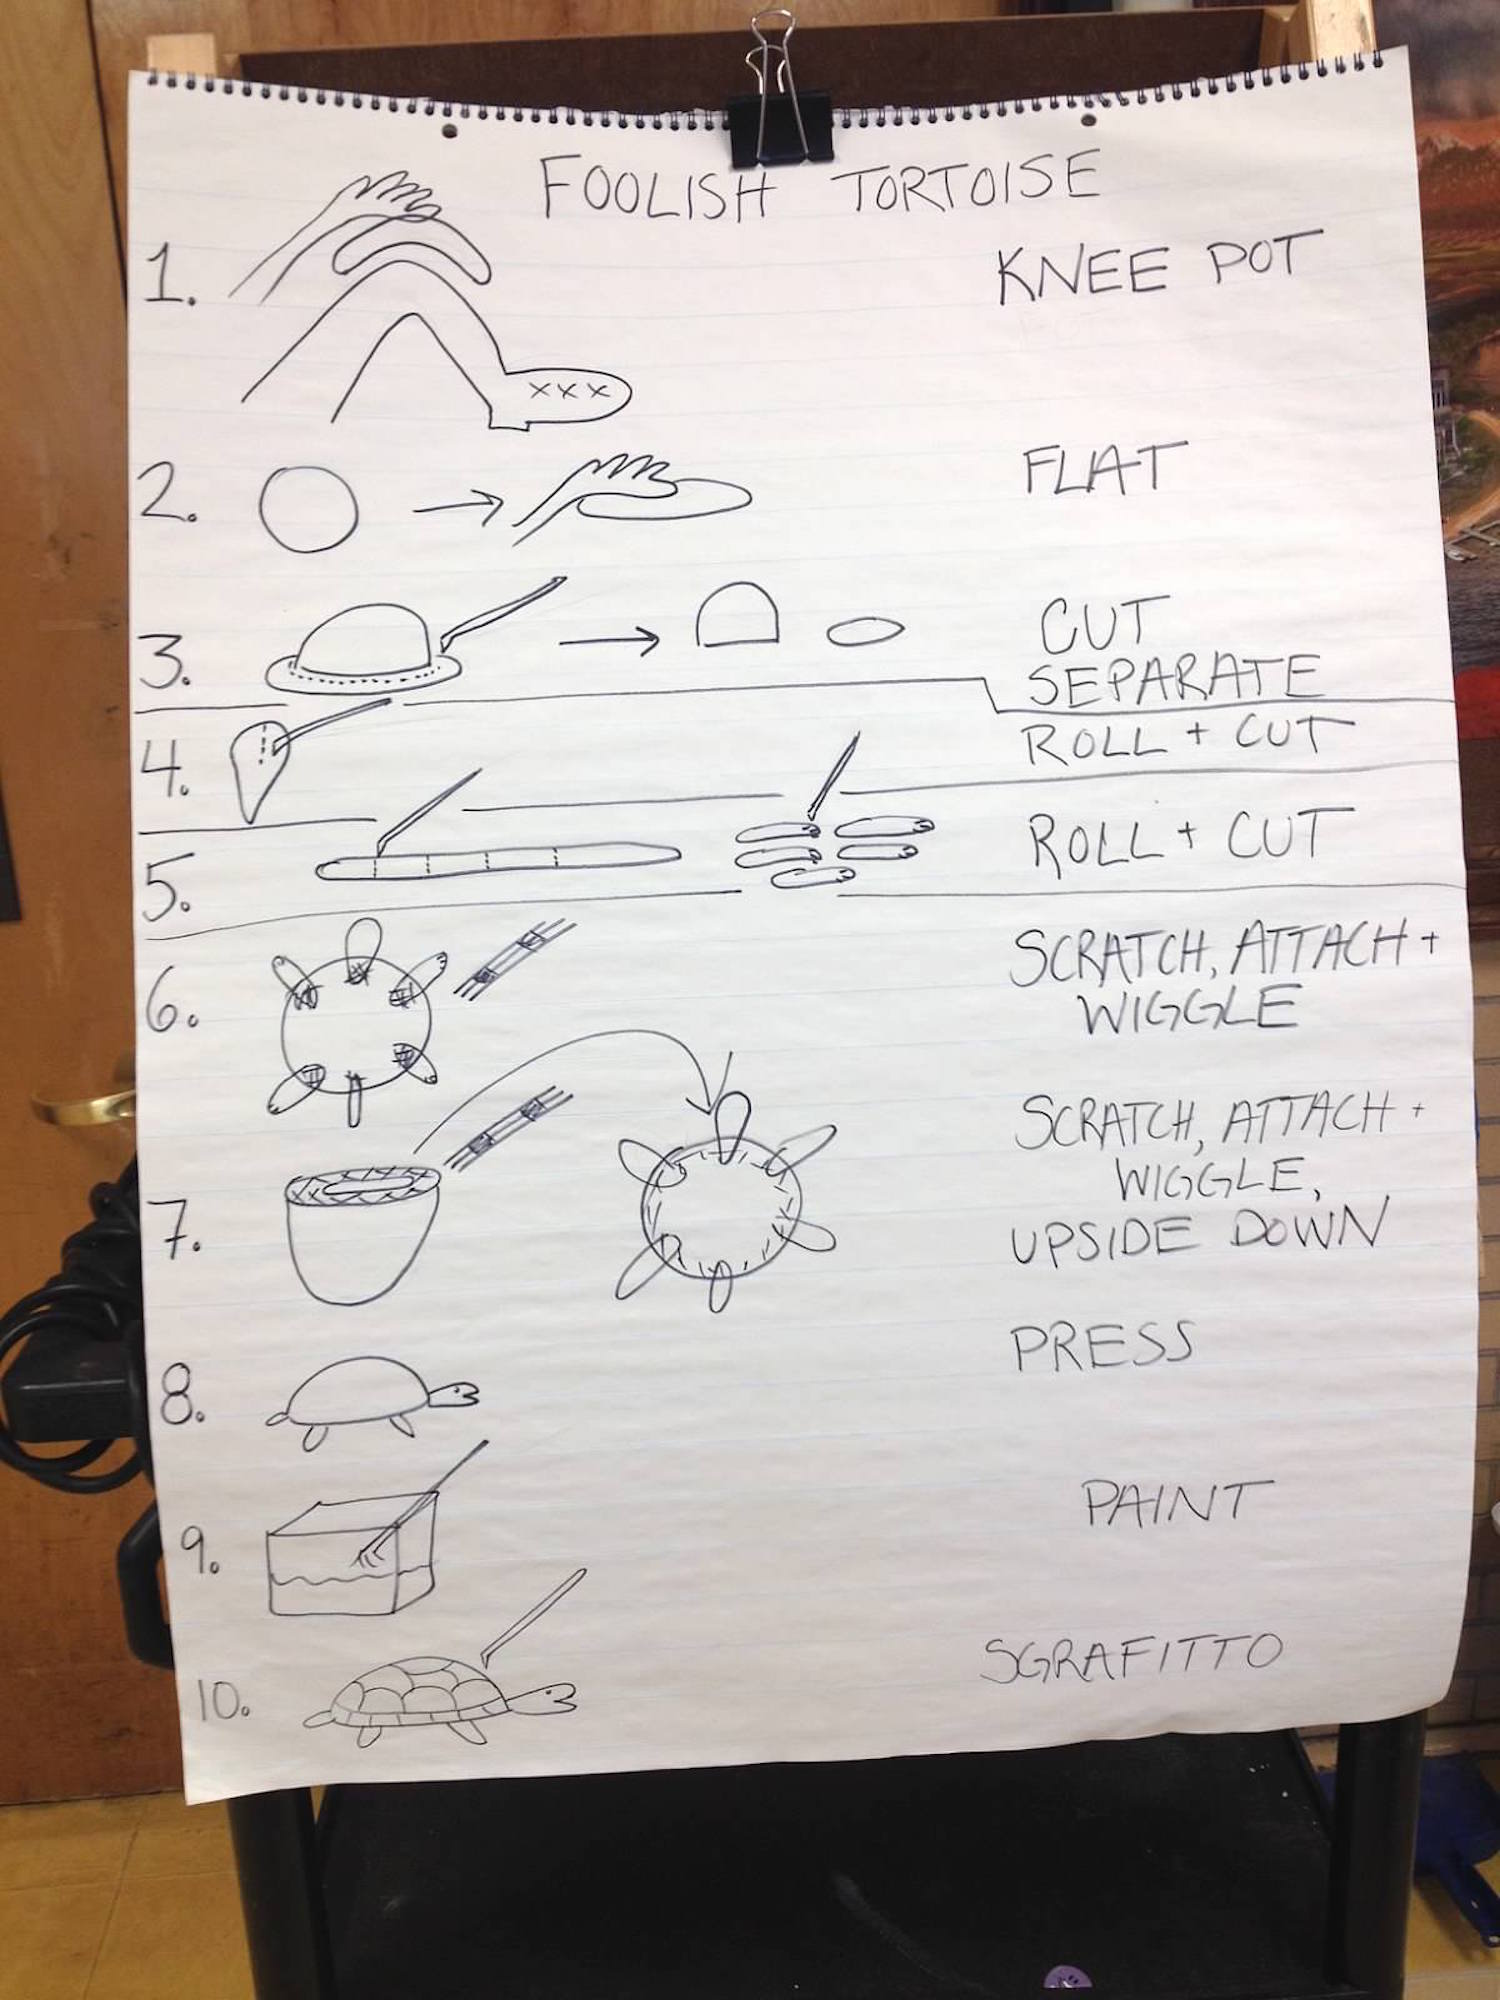 FOOLISH TORTOISE
1. KNEE POT
2. FLAT
3. CUT
SEPARATE
4. ROLL + CUT
5. ROLL + CUT
6. SCRATCH, ATTACH +
WIGGLE
7. SCRATCH, ATTACH +
WIGGLE,
UPSIDE DOWN
8. PRESS
9. PAINT
10. SGRAFITTO